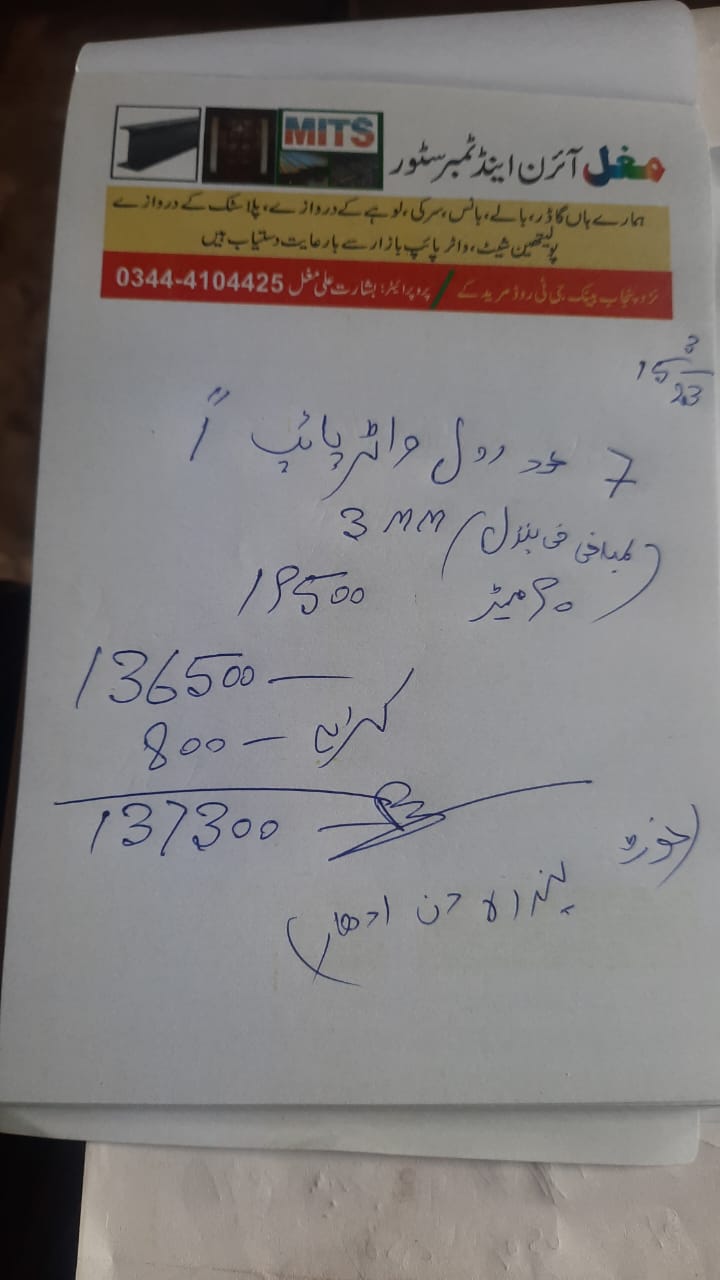 MITS
مغل آئرن اینڈ ٹمبر سٹور
ہمارے ہاں گاڈر، بالے، بانس، سرکی، لوہے کے دروازے، پلاسٹک کے دروازے
پولیتھین شیٹ، واٹر پائپ بازار سے بارعایت دستیاب ہیں
نزد پنجاب بینک جی ٹی روڈ مریدکے / پروپرائیٹر: بشارت علی مغل 0344-4104425
15 3 23
7 عدد رول واٹر پائپ 1"
(لمبائی فی بنڈل) 3 MM
۹۰ میٹر 19500
136500 —
کرایہ — 800
137300
(نوٹ
پندرہ دن ادھار)